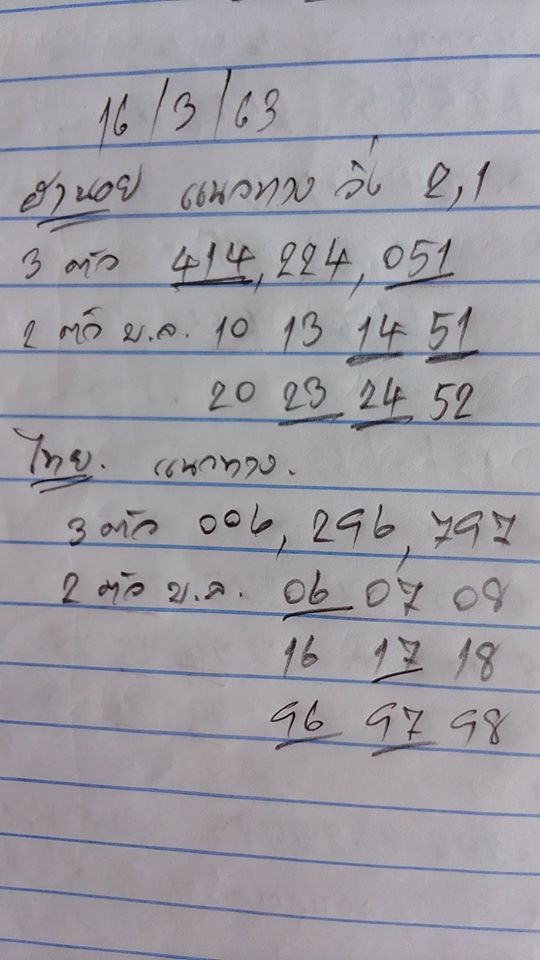 16/3/63
ฮานอย แนวทาง วิ่ง 2,1
3 ตัว 414, 224, 051
2 ตัว บ.ล. 10 13 14 51
20 23 24 52
ไทย. แนวทาง.
3 ตัว 006, 296, 797
2 ตัว บ.ล. 06 07 08
16 17 18
96 97 98